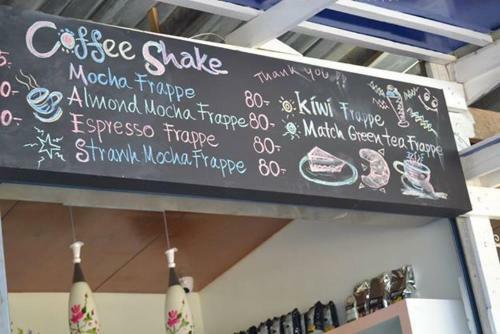 Coffee Shake
Thank you
5.
Mocha Frappe 80.-
0.-
Almond Mocha Frappe 80.-
0.-
Espresso Frappe 80.-
Strank Mocha Frappe 80.-
kiwi Frappe
Match Green tea Frappe